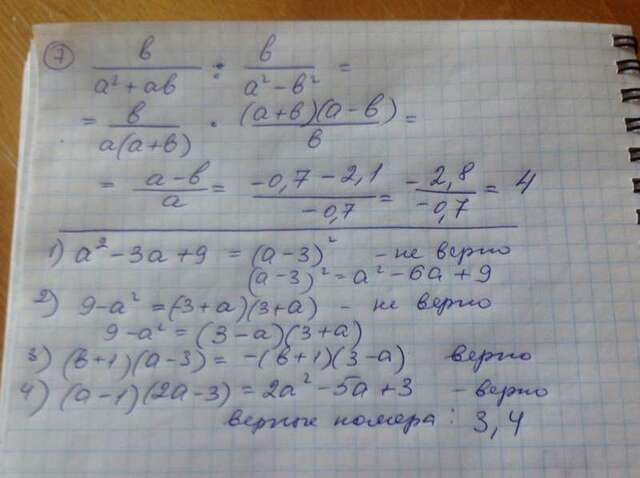 7 в/(a²+aв) : в/(a²-в²) =
= в/(a(a+в)) · (a+в)(a-в)/в =
= (a-в)/a = (-0,7-2,1)/(-0,7) = (-2,8)/(-0,7) = 4
1) a²-3a+9 = (a-3)² - не верно
(a-3)² = a²-6a+9
2) 9-a² = (3+a)(3+a) - не верно
9-a² = (3-a)(3+a)
3) (в+1)(a-3) = -(в+1)(3-a) верно
4) (a-1)(2a-3) = 2a²-5a+3 - верно
верные номера: 3,4